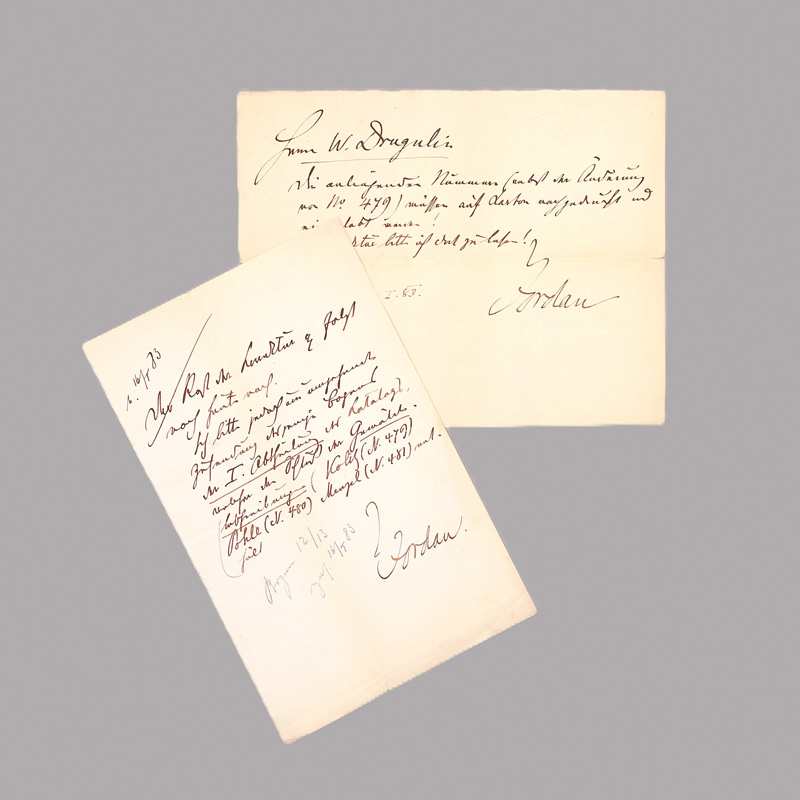 Herrn W. Drugulin
Die anliegenden Nummern (nebst der Änderung
von No 479) müssen auf Karton nachgedruckt und
werden!
bitte ich dort zu lesen!
I. 83.
Jordan
16/5 83
Der Rest der Correktur folgt
noch heute nach.
Ich bitte jedoch um umgehende
Zusendung desjenigen Bogens
der I. Abtheilung des Katalogs,
welcher den Schluß der Gemälde-
beschreibungen (Kolitz (N. 479)
Pohle (N. 480) Menzel (N. 481) ent-
hält
Jordan.
Bogen 12/13
16/5 83